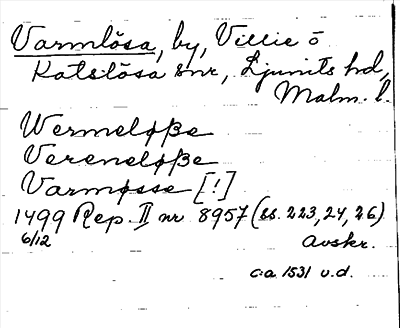 Varmlösa, by, Villie o
Katslösa snr, Ljunits hd,
Malm. l.
Wermeløße
Vereneløße
Varmøsse [!]
1499 Rep. II nr 8957 (ss. 223, 24, 26)
6/12 Avskr.
ca 1531 u.d.